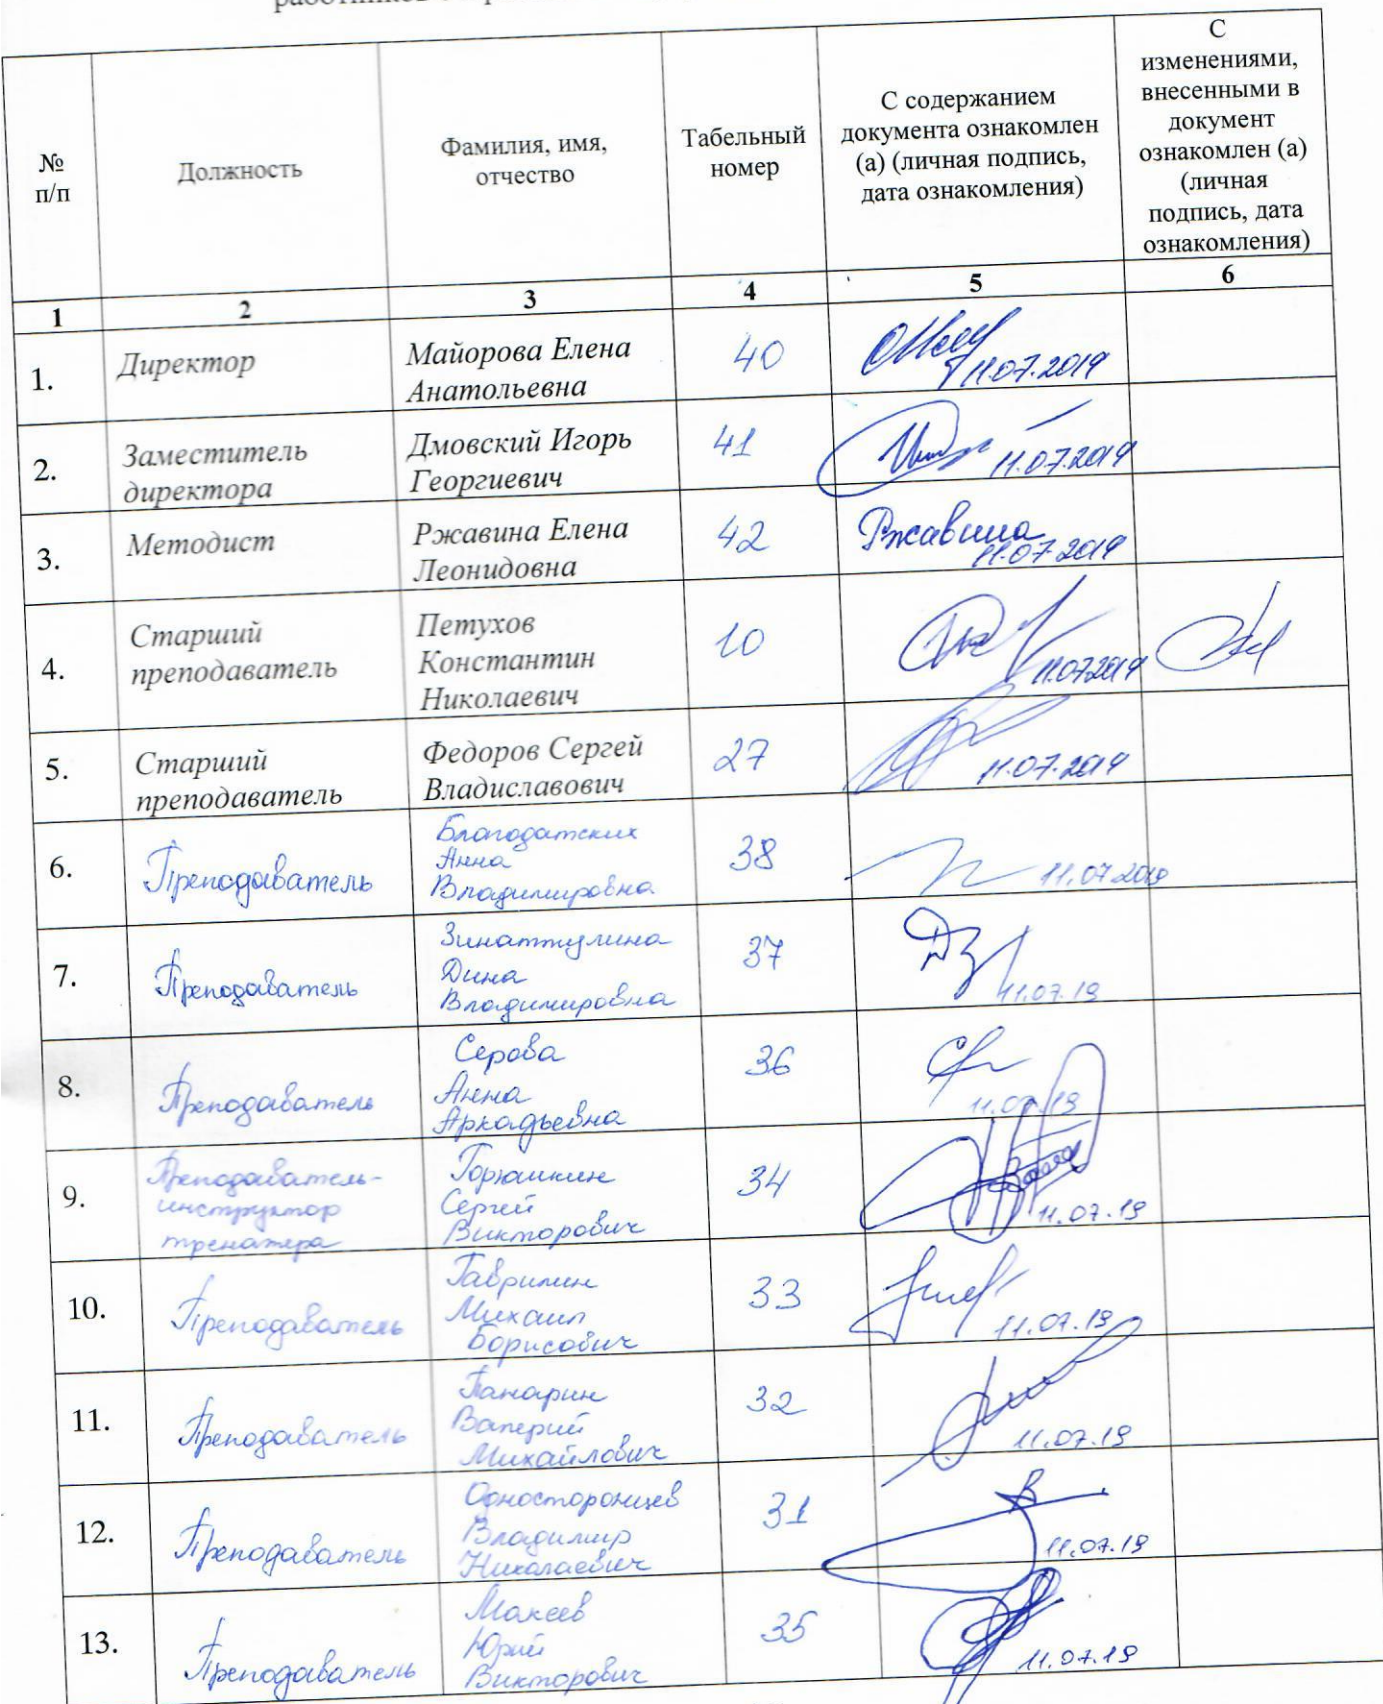 №
п/п
Должность
Фамилия, имя,
отчество
Табельный
номер
С содержанием
документа ознакомлен
(а) (личная подпись,
дата ознакомления)
С
изменениями,
внесенными в
документ
ознакомлен (а)
(личная
подпись, дата
ознакомления)
1
2
3
4
5
6
1.
Директор
Майорова Елена
Анатольевна
40
11.07.2019
2.
Заместитель
директора
Дмовский Игорь
Георгиевич
41
11.07.2019
3.
Методист
Ржавина Елена
Леонидовна
42
Ржавина
11.07.2019
4.
Старший
преподаватель
Петухов
Константин
Николаевич
10
11.07.2019
5.
Старший
преподаватель
Федоров Сергей
Владиславович
27
11.07.2019
6.
Преподаватель
Благодатских
Анна
Владимировна
38
11.07.2019
7.
Преподаватель
Зинаттулина
Дина
Владимировна
37
11.07.19
8.
Преподаватель
Серова
Анна
Аркадьевна
36
11.07.19
9.
Преподаватель-
инструктор
тренажера
Горюшкин
Сергей
Викторович
34
11.07.19
10.
Преподаватель
Гаврилин
Михаил
Борисович
33
11.07.19
11.
Преподаватель
Панарин
Валерий
Михайлович
32
11.07.19
12.
Преподаватель
Односторонцев
Владимир
Николаевич
31
11.07.19
13.
Преподаватель
Макеев
Юрий
Викторович
35
11.07.19